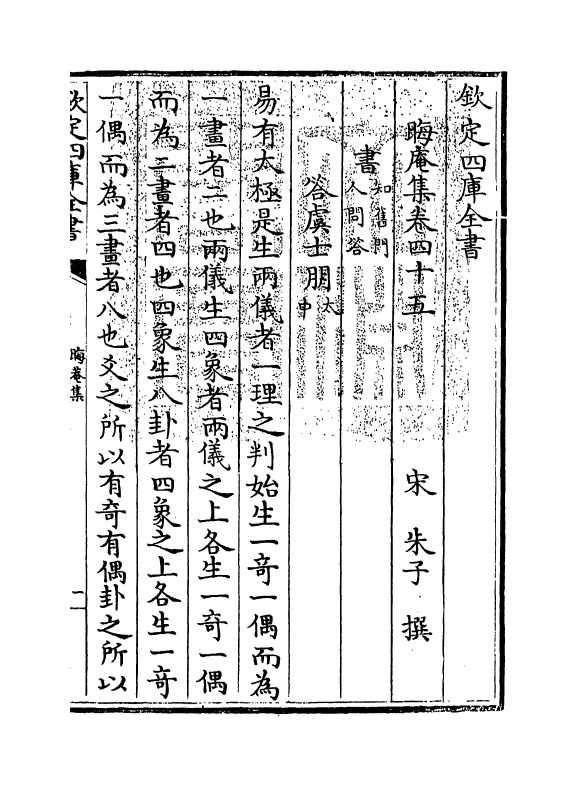 欽定四庫全書
晦庵集卷四十五　宋　朱子　撰
書知舊門人問答
答虞士朋太中
易有太極是生兩儀者一理之判始生一奇一偶而為
一畫者二也兩儀生四象者兩儀之上各生一奇一偶
而為二畫者四也四象生八卦者四象之上各生一奇
一偶而為三畫者八也爻之所以有奇有偶卦之所以
欽定四庫全書
晦菴集